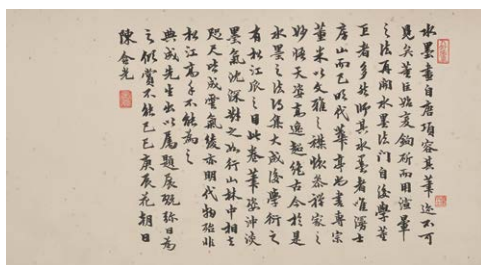 水墨畫自唐項容其筆迹不可
見矣董巨始變鉤斫而用渲暈
之法再開水墨法門自後學董
巨者多然師其水墨者唯溥士
房山而已明代華亭尚書專宗
董米以文雅之標懷參禪家之
妙悟天姿高逸超絕古今於是
水墨之法得集大成後學衍之
有松江派之目此卷筆姿沖淡
墨氣沈深對之如行山林中相去
咫尺皆成靈氣綾亦明代物殆非
松江高手不能為之
典成先生出以屬題展玩弥日為
之似賞不能已已庚辰花朝日
陳含光